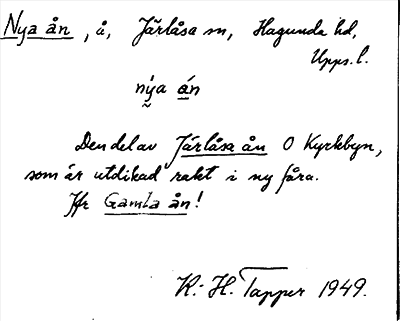 Nya ån, å, Järlåsa sn, Hagunda hd,
Upps. l.
nýa án
Den del av Järlåsa ån O Kyrkbyn,
som är utdikad rakt i ny fåra.
Jfr Gamla ån!
K.-H. Tapper 1949.